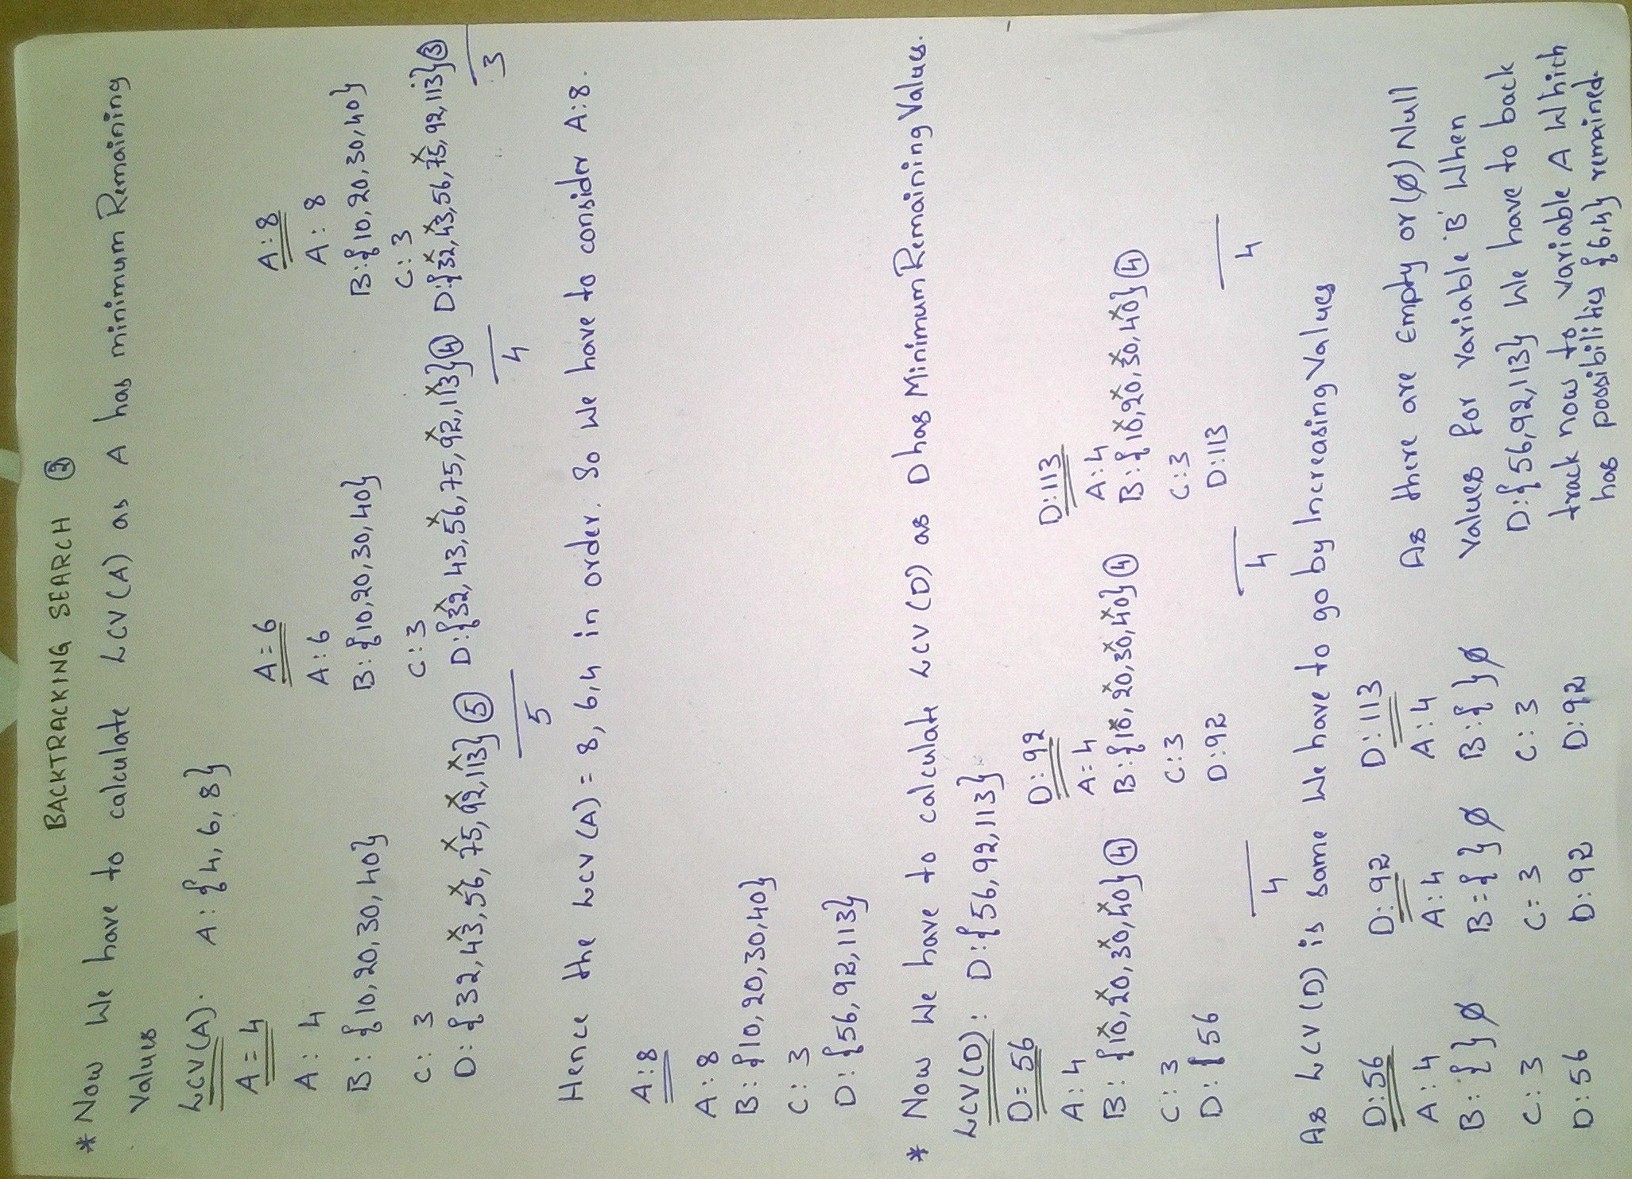 BACKTRACKING SEARCH ②
* Now We have to calculate LCV(A) as A has minimum Remaining
Values
LCV(A). A: {4, 6, 8}
A = 4
A: 4
B: {10, 20, 30, 40}
C: 3
D: {32, 43, 56, 75, 92, 113} ⑤
5
A = 6
A: 6
B: {10, 20, 30, 40}
C: 3
D: {32, 43, 56, 75, 92, 113} ④
4
A: 8
A: 8
B: {10, 20, 30, 40}
C: 3
D: {32, 43, 56, 75, 92, 113} ③
3
Hence the LCV (A) = 8, 6, 4 in order. So We have to consider A: 8.
A: 8
A: 8
B: {10, 20, 30, 40}
C: 3
D: {56, 92, 113}
* Now We have to calculate LCV (D) as D has Minimum Remaining Values.
LCV(D): D: {56, 92, 113}
D = 56
A: 4
B: {10, 20, 30, 40} ④
C: 3
D: { 56
4
D: 92
A = 4
B: {10, 20, 30, 40} ④
C: 3
D: 92
4
D: 113
A: 4
B: {10, 20, 30, 40} ④
C: 3
D: 113
4
As LCV (D) is same We have to go by Increasing Values
D: 56
A: 4
B: { } Ø
C: 3
D: 56
D: 92
A: 4
B = { } Ø
C = 3
D: 92
D: 113
A: 4
B: { } Ø
C: 3
D: 92
As there are Empty or (Ø) Null
Values for Variable 'B' When
D: {56, 92, 113} We have to back
track now to variable A Which
has possibilities {6, 4} remained.